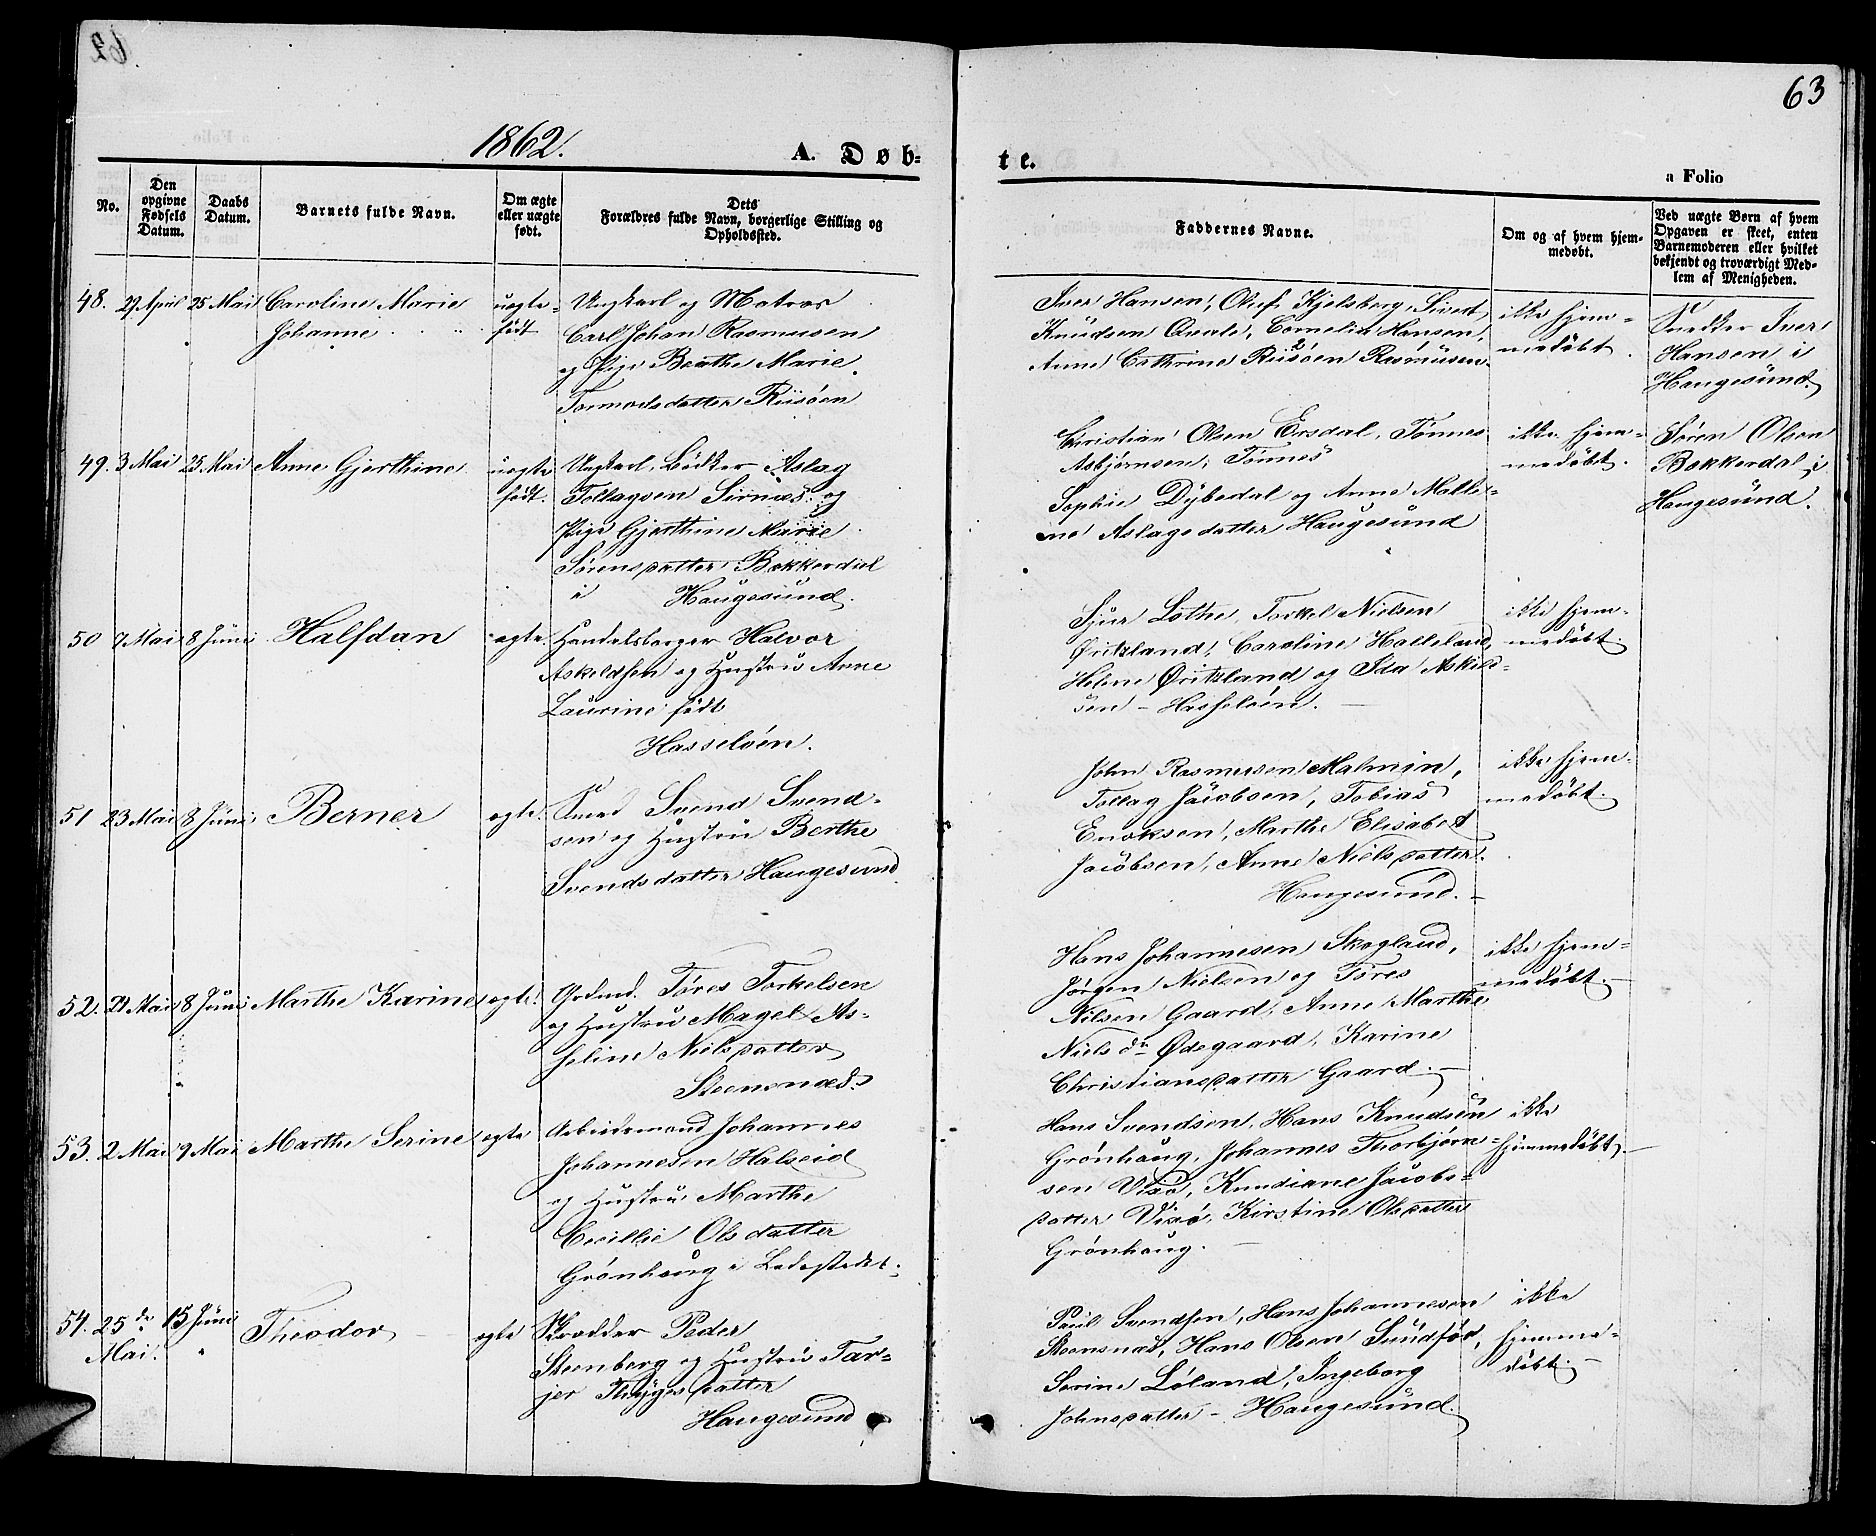 63
1862.
A. Døb-
te.
a Folio
No.
Den opgivne Fødsels Datum.
Daabs Datum.
Barnets fulde Navn.
Om ægte eller uægte født.
Dets Forældres fulde Navn, borgerlige Stilling og Opholdssted.
Faddernes Navne.
Om og af hvem hjem-
medøbt.
Ved uægte Børn af hvem
Opgaven er skeet, enten
Barnemoderen eller hvilket
bekjendt og troværdigt Med-
lem af Menigheden.
48. 29 April 25 Mai Caroline Marie
Johanne
uægte
født
Ungkarl og Matros
Carl Johan Rasmusen
og Pige Berthe Marie
Tormodsdatter Riisöen
Iver Hansen, Oluf Kjelsberg, Sivert
Knudsen Qvale, Cornelia Hansen,
Anne Cathrine Riisöen Rasmusen
ikke hjem-
medöbt.
Snedker Iver
Hansen i
Haugesund.
49. 3 Mai 25 Mai Anne Gjerthine
uægte
født.
Ungkarl, Bödker Aslag
Tollagsen Sirnæs og
Pige Gjerthine Marie
Sörensdatter Bakkerdal
i Haugesund.
Christian Olsen Ersdal, Tönnes
Asbjörnsen, Tönnes
Sophie Dybedal og Anne Malle-
ne Aslagsdatter Haugesund
ikke hjem-
medöbt.
Sören Olsen
Bakkerdal i
Haugesund.
50 7 Mai 8 Juni Halfdan
ægte.
Handelsborger Halvor
Askeldsen og Hustru Anne
Laurine født
Hasselöen.
Sjur Lothe, Torkel Nielsen
Öritzland, Caroline Halleland,
Helene Öritzland og Ida Askild-
sen - Hasselöen.
ikke hjem-
medöbt.
51 23 Mai 8 Juni Berner
ægte.
Smed Svend Svend-
sen og Hustru Berthe
Svendsdatter Haugesund.
John Rasmusen Malmin,
Tollag Jacobsen, Tobias
Enoksen, Marthe Elisabet
Jacobsen, Anne Nielsdatter.
Haugesund.
ikke hjem-
medöbt.
52. 21 Mai 8 Juni Marthe Karine
ægte.
Grdmd. Töres Torkelsen
og Hustru Magel As-
seline Nielsdatter
Steensnæs.
Hans Johannesen Skogland,
Jörgen Nielsen og Töres
Nilsen Gaard, Anne Marthe
Niels dr Ödegaard, Karine
Christiansdatter Gaard.
ikke hjem-
medöbt.
53. 2 Mai 9 Mai Marthe Serine
ægte
Arbeidsmand Johannes
Johannesen Halseid
og Hustru Marthe
Cecillie Olsdatter
Grönhaug i Ladestedet.
Hans Svendsen, Hans Knudsen
Grönhaug, Johannes Thorbjörn-
sen Vixö, Knudiane Jacobs-
datter Vixö, Kirstine Olsdatter
Grönhaug.
ikke
hjemmedöbt.
54. 25 de 15 Juni
Mai.
Theodor
ægte
Skrædder Peder
Steenberg og Hustru Tar-
jer Thygesdatter
Haugesund
Paul Svendsen, Hans Johannesen
Steensnæs, Hans Olsen Sundför,
Serine Löland, Ingeborg
Johnsdatter - Haugesund.
ikke
hjemme-
döbt.